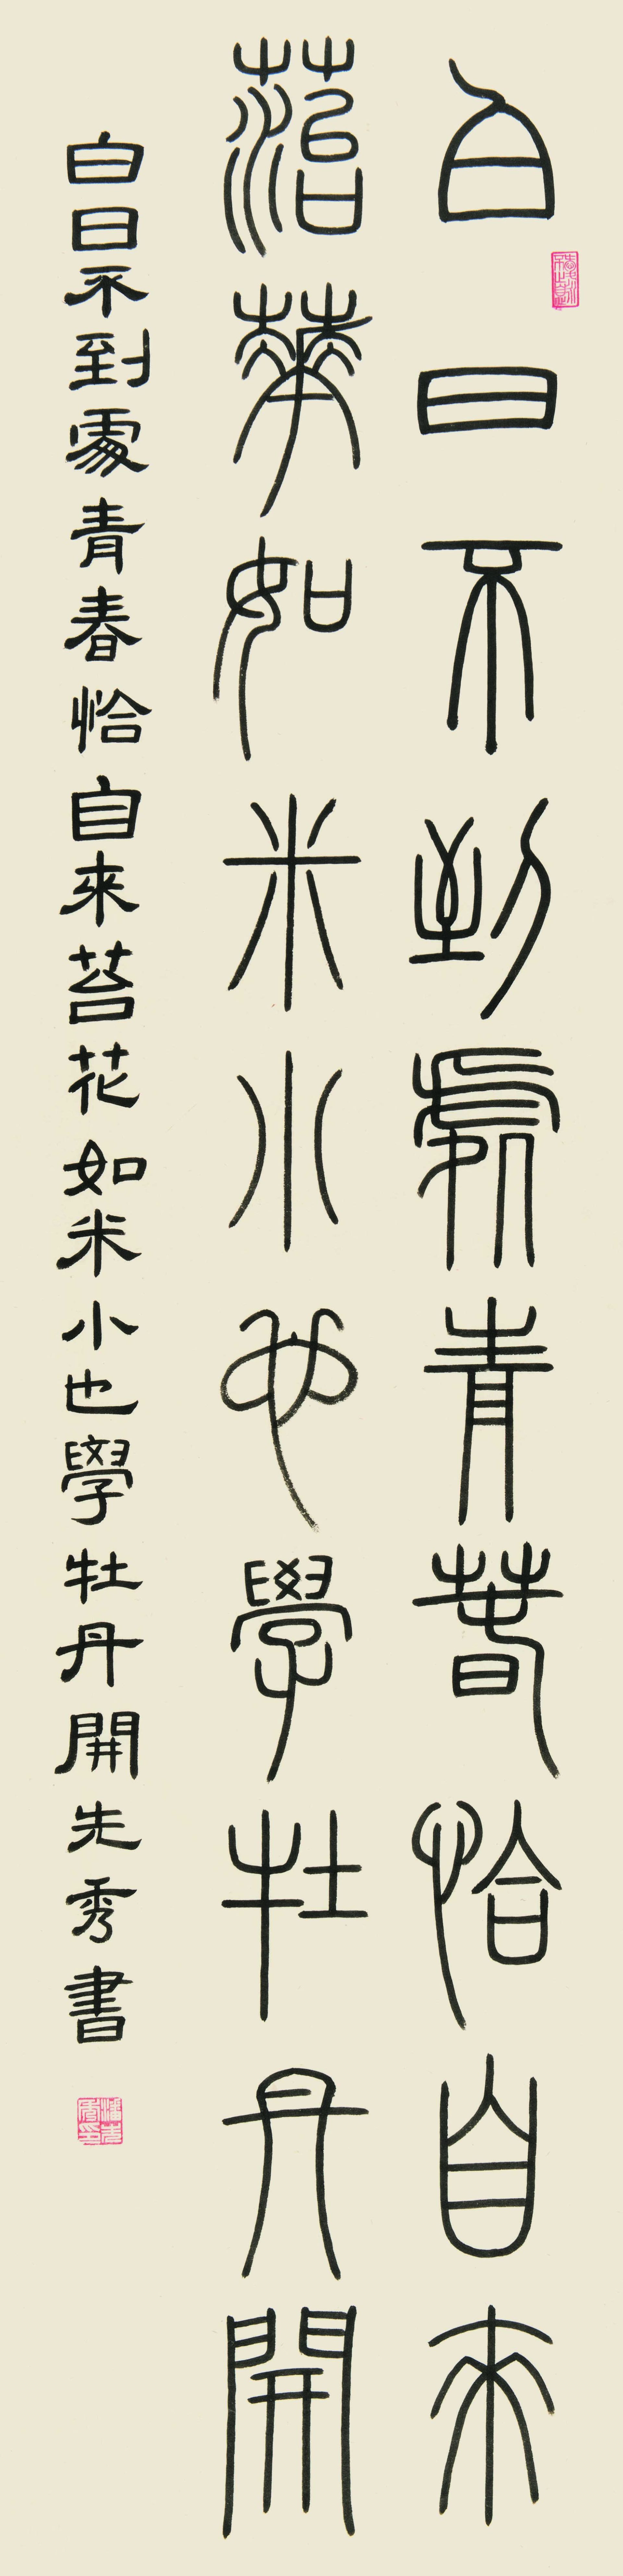 白日不到處青春恰自來
菭華如米小也學牡丹開
白日不到處青春恰自來苔花如米小也學牡丹開先秀書